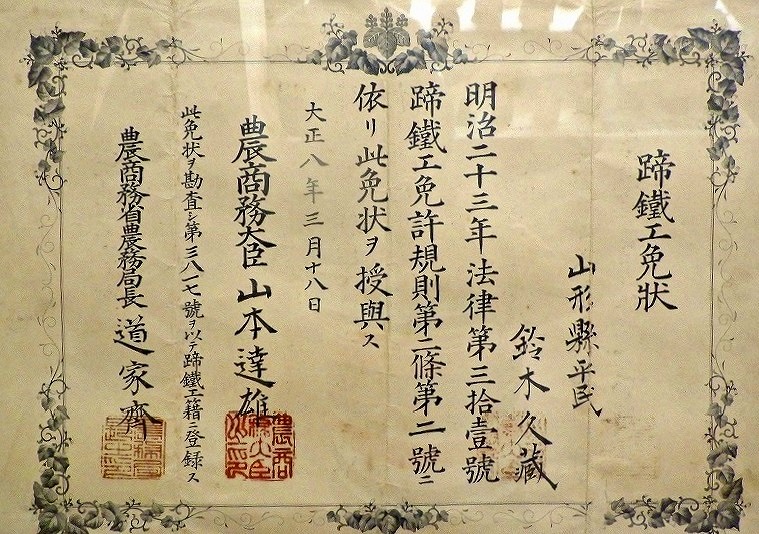 蹄鐵工免狀
山形縣平民
鈴木久藏
明治二十三年法律第三拾壹號
蹄鐵工免許規則第二條第二號ニ
依リ此免狀ヲ授與ス
大正八年三月十八日
農商務大臣山本達雄
此免狀ヲ勘査シ第三八一七號ヲ以テ蹄鐵工籍ニ登録ス
農商務省農務局長道家齊